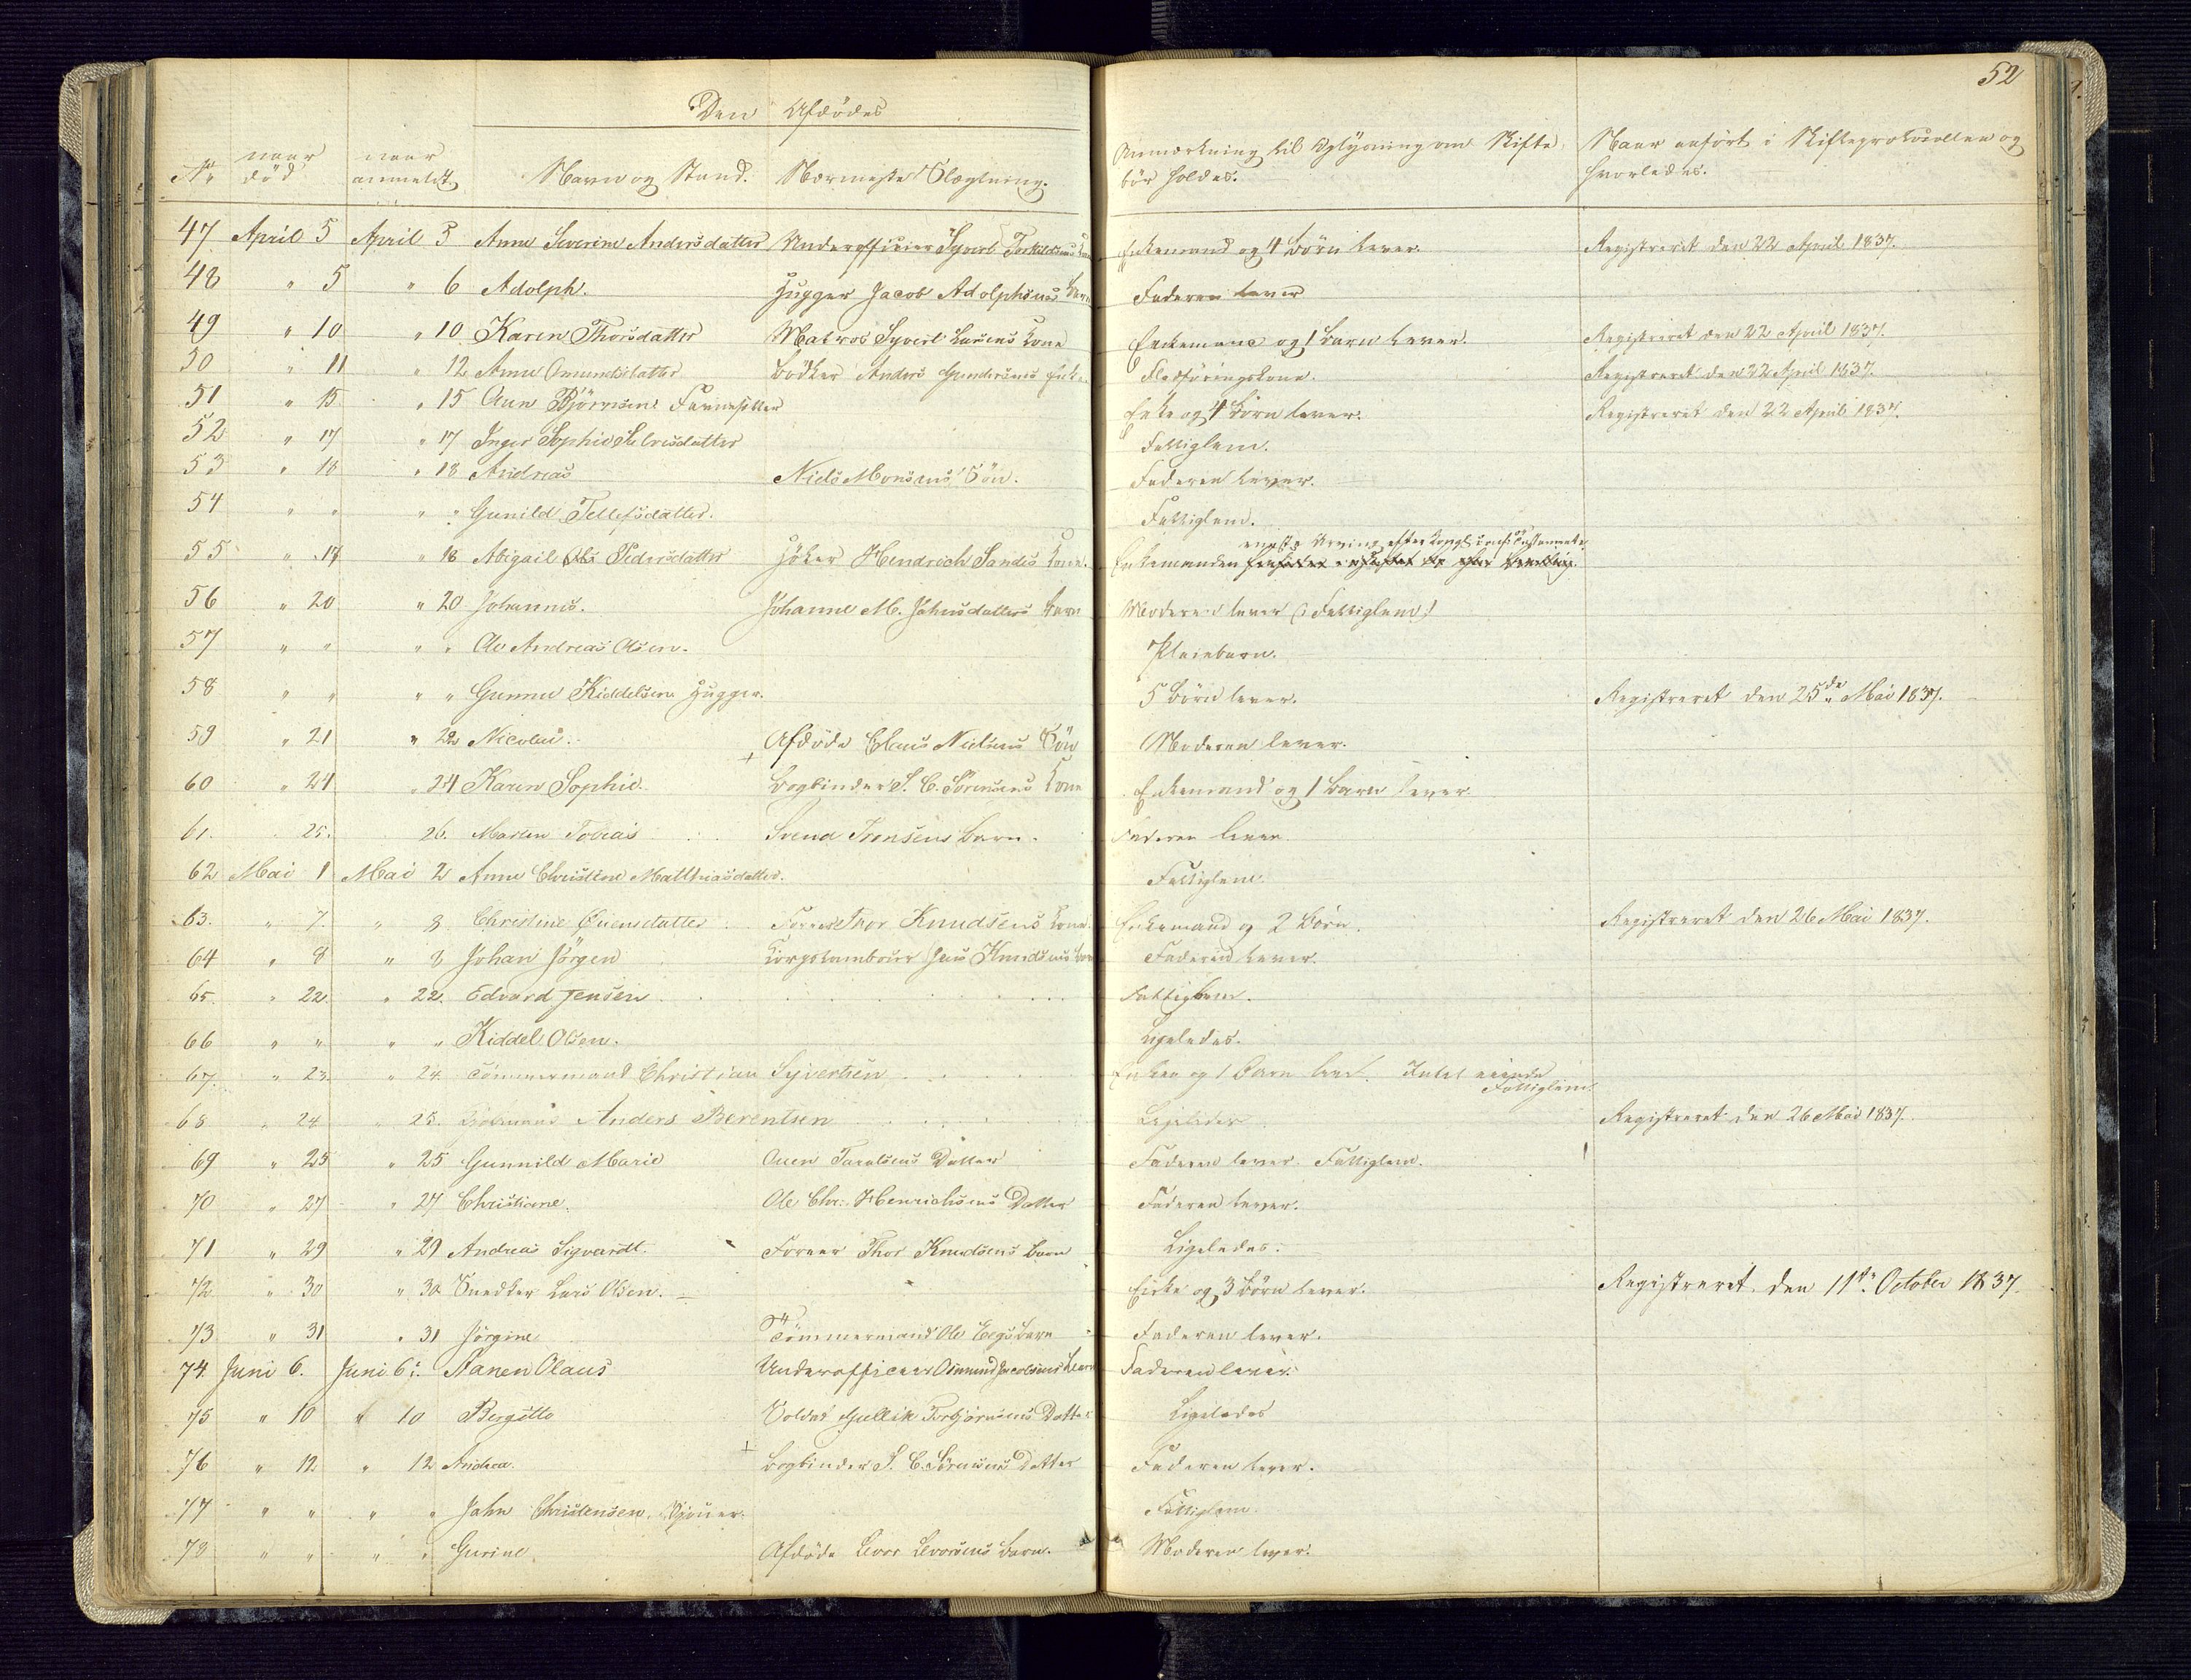 52
Den Afdødes
No naar død naar anmeldt Navn og Stand. Nærmeste Slægtning. Anmærkning til Oplysning om Skifte bør holdes. Naar anført i Skifteprotocollen og hvorledes.
47 April 5 April 5 Anne Severine Andersdatter Underofficier Syvert Torkildsens Kone Enkemand og 4 Börn lever. Registreret den 22 April 1837.
48 " 5 " 6 Adolph. Hugger Jacob Adolphsens Barn Faderen lever
49 " 10 " 10 Karen Thorsdatter Matros Syvert Larsens Kone Enkemand og 1 Barn lever. Registreret den 22 April 1837.
50 " 11 " 12 Anne Omundsdatter Bödker Anders Gundersens Enke Fledföringskone. Registreret den 22 April 1837.
51 " 15 " 15 Aun Björnsen Enke og 4 Börn lever. Registreret den 22 April 1837.
52 " 17 " 17 Inger Sophie Fattiglem.
53 " 18 " 18 Andreas Niels Monsens Sön. Faderen lever.
54 " " " " Gunild Tellefsdatter. Fattiglem.
55 " 17 " 18 Abigail Pedersdatter Höker Hendrich Sandes Kone. Enkemanden eneste Arving efter
56 " 20 " 20 Johannes. Johanne M. Jahnsdatters Barn Moderen lever (: Fattiglem :)
57 " " " " Ole Andreas Olsen. Pleiebarn.
58 " " " " Gunner Kiddelsen Hugger. 5 Börn lever. Registreret den 25de Mai 1837.
59 " 21 " 22 Nicolai. Afdöde Claus Nielsens Sön Moderen lever.
60 " 24 " 24 Karen Sophie. + Bogbinder S. C. Sörensens Kone Enkemand og 1 Barn lever.
61. 25. 26. Marten Tobias Svend Tronsens Barn. Faderen lever
62 Mai 1 Mai 2 Anne Christine Matthiasdatter. Fattiglem.
63. " 7. " 8. Christine Evensdatter Forrer Thor Knudsens Kone. Enkemand og 2 Börn. Registreret den 26 Mai 1837.
64 " 8 " 8 Johan Jörgen Korpstambour Jens Knudsens Faderen lever.
65. " 22 " 22. Edvard Jensen Fattiglem.
66 " " " " Kiddel Olsen. Ligeledes.
67. " 23. " 24. Tömmermand Christian Syvertsen Enken og 1 Barn lever. Intet eiende Fattiglem
68 " 24 " 25. Anders Berentsen Ligeledes Registreret den 26 Mai 1837.
69 " 25 " 25 Gunnild Marie Ouen Taralsens Datter Faderen lever. Fattiglem.
70 " 27 " 27 Christiane. Ole Chr. Henrichsens Datter Faderen lever.
71 " 29 " 29 Andreas Sigvardt. Forrer Thor Knudsens Barn Ligeledes.
72. " 30 " 30 Snedker Lars Olsen. Enke og 3 Börn lever. Registreret den 11te October 1837.
73 " 31 " 31 Jörgine Tömmermand Ole Eegs Barn Faderen lever.
74. Juni 6. Juni 6. Hanen Olaus Underofficeer Osmund Jacobsens Barn Faderen lever.
75 " 10 " 10 Bergitte Soldat Gullik Torbjörnsens Datter Ligeledes
76 " 12 " 12 Andrea. + Bogbinder S. C. Sörensens Datter Faderen lever.
77 " " " " Jahn Christensen. Fattiglem
78 " " " " Gurine Afdöde Levor Levorsens Barn. Moderen lever.